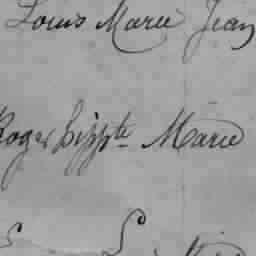 Louis Marie Jean
Roger hippte Marie